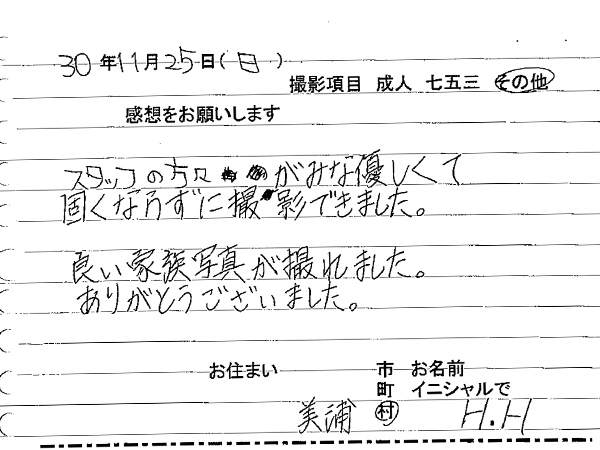 30年11月25日(日)
撮影項目 成人 七五三 その他
感想をお願いします
スタッフの方々がみな優しくて
固くならずに撮影できました。
良い家族写真が撮れました。
ありがとうございました。
お住まい 市 お名前
町 イニシャルで
美浦 村 H.H